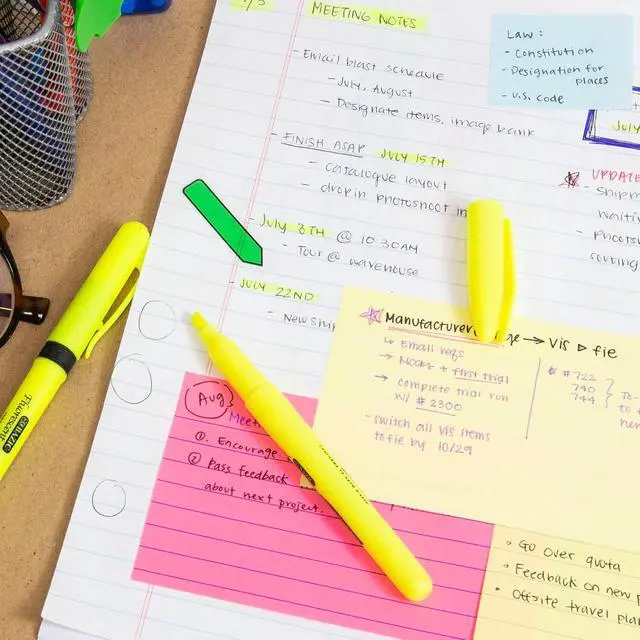 7/5
MEETING NOTES
- Email blast schedule
- July, August
- Designate items, image bank
- FINISH ASAP JULY 15TH
- catalogue layout
- drop in photoshoot
- July 8TH @ 10:30AM
- Tour @ warehouse
- JULY 22ND
Law:
- Constitution
- Designation for
places
- U.S. code
July
UPDATE
Manufacturer → Vis ▷ fie
↳ Email reqs
→ Mocks + first trial
→ complete trial run
w/ # 2300
- switch all vis items
to fie by 10/29
# 722
740
744
Aug
①. Encourage
② Pass feedback
about next project.
• Go over quota
• Feedback on new
• Offsite travel
Fluorescent
SHARPIE